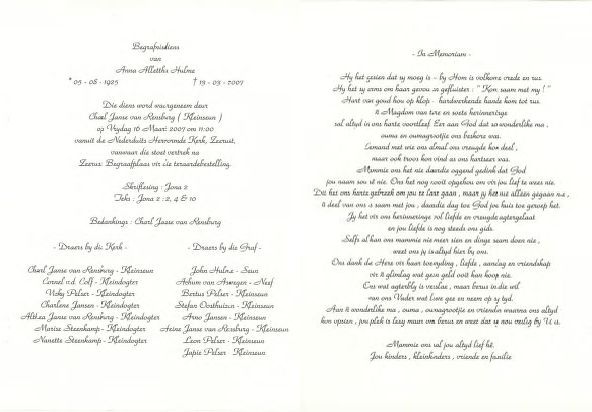 Begrafnisdiens
van
Anna Alletta Hulme
* 05 - 08 - 1925 † 13 - 03 - 2007
Die diens word waargeneem deur
Charl Janse van Rensburg ( Kleinseun )
op Vrydag 16 Maart 2007 om 11:00
vanuit die Nederduits Hervormde Kerk, Zeerust,
vanwaar die stoet vertrek na
Zeerust Begraafplaas vir die teraardebestelling.
Skriflesing : Jona 2
Teks : Jona 2 : 2, 4 & 10
Bedankings : Charl Janse van Rensburg
- Draers by die Kerk -
Charl Janse van Rensburg - Kleinseun
Cornel v.d. Colf - Kleindogter
Vicky Pelser - Kleindogter
Charlene Jansen - Kleindogter
Janse van Rensburg - Kleindogter
Marisa Steenkamp - Kleindogter
Nanette Steenkamp - Kleindogter
- Draers by die Graf -
John Hulme - Seun
van Aswegen - Neef
Bertus Pelser - Kleinseun
Stefan Oosthuizen - Kleinseun
Arno Jansen - Kleinseun
Janse van Rensburg - Kleinseun
Leon Pelser - Kleinseun
Japie Pelser - Kleinseun
- In Memoriam -
Hy het gesien dat sy moeg is - by Hom is volkome vrede en rus.
Hy het sy arms om haar gevou en gefluister : " Kom saam met my ! "
Hart van goud hou op klop - hardwerkende hande kom tot rus.
'n Magdom van tere en soete herinneringe
sal altyd in ons harte voortleef. Eer aan God dat so wonderlike ma ,
ouma en oumagrootjie ons beskore was.
Iemand met wie ons almal ons vreugde kon deel ,
maar ook troos kon vind as ons hartseer was.
Mammie ons het nie daardie oggend gedink dat God
jou naam sou sê nie. Ons het nog nooit opgehou om vir jou lief te wees nie.
Dit het ons harte gebreek om jou te laat gaan , maar jy het nie alleen gegaan nie ,
'n deel van ons is saam met jou , daardie dag toe God jou huis toe geroep het.
Jy het vir ons herinneringe vol liefde en vreugde agtergelaat
en jou liefde is nog steeds ons gids.
Selfs al kan ons mammie nie meer sien en dinge saam doen nie ,
weet ons jy is altyd hier by ons.
Ons dank die Here vir haar toewyding , liefde , aandag en vriendskap
vir 'n glimlag wat geen geld ooit kan koop nie.
Ons wat agterbly is verslae , maar berus in die wil
van ons Vader wat Lewe gee en neem op sy tyd.
Aan 'n wonderlike ma , ouma , oumagrootjie en vriendin waarna ons altyd
kon opsien , jou plek is leeg maar ons berus en weet dat sy nou veilig by U is.
Mammie ons sal jou altyd lief hê.
Jou kinders , kleinkinders , vriende en familie